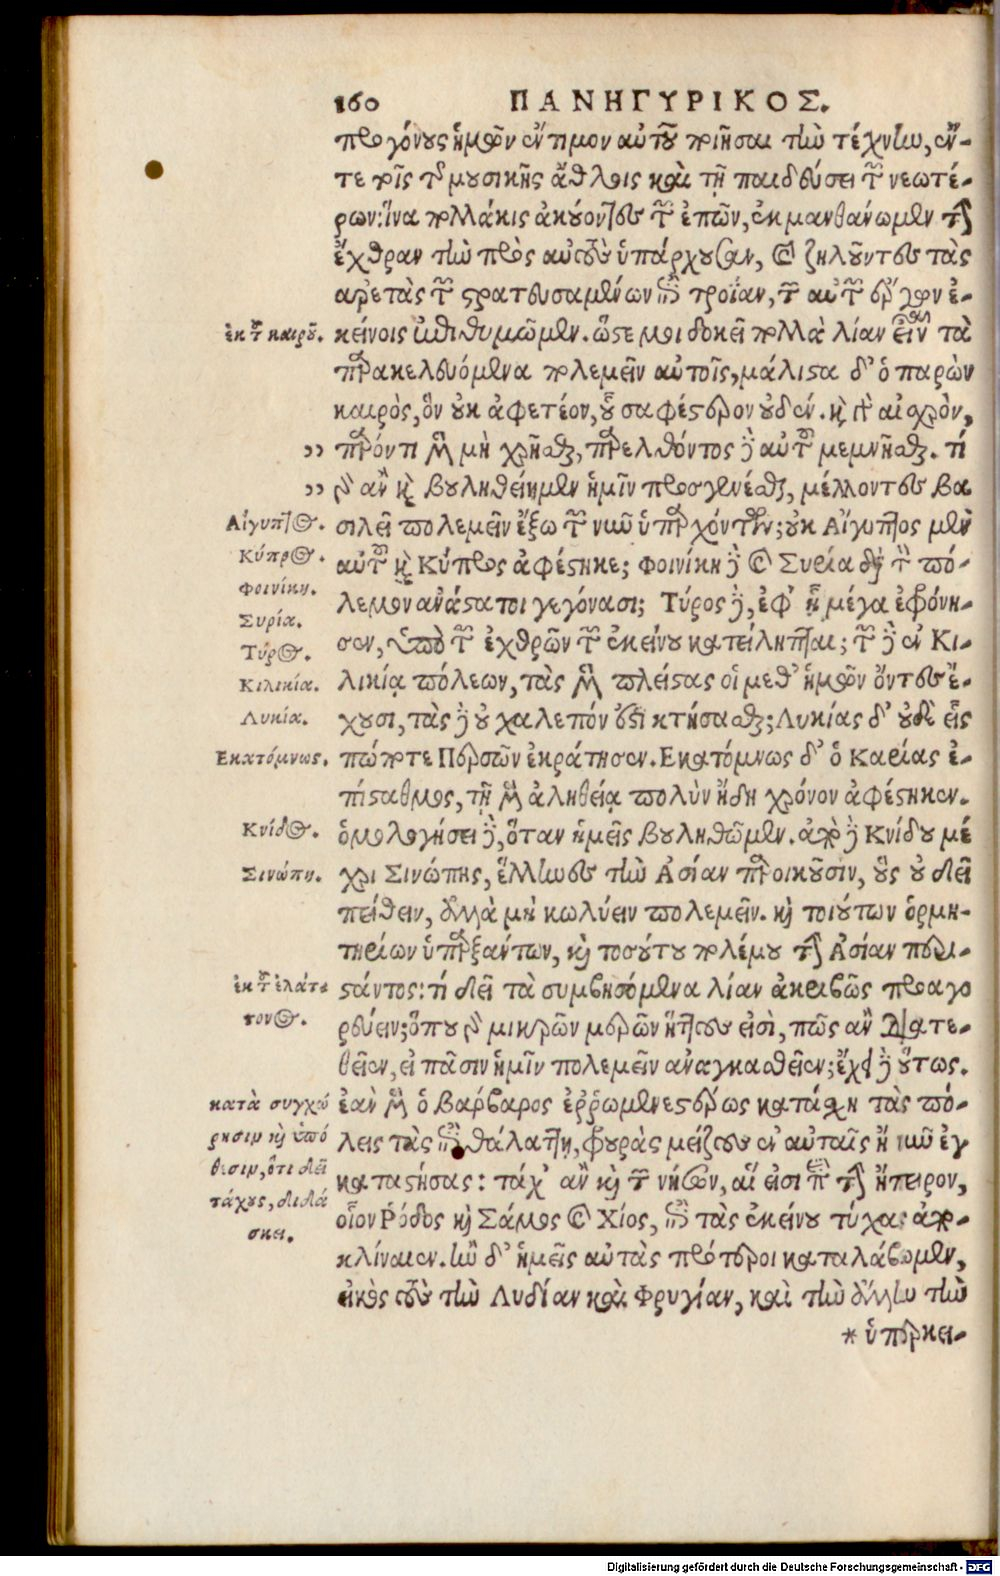 160 ΠΑΝΗΓΥΡΙΚΟΣ.
προγόνους ἡμῶν ἔντιμον αὐτοῦ ποιῆσαι τὴν τέχνην, ἔν-
τε τοῖς τῆς μουσικῆς ἄθλοις καὶ τῇ παιδεύσει τῶν νεωτέ-
ρων: ἵνα πολλάκις ἀκούοντες τῶν ἐπῶν, ἐκμανθάνωμεν τὴν
ἔχθραν τὴν πρὸς αὐτοὺς ὑπάρχουσαν, καὶ ζηλοῦντες τὰς
ἀρετὰς τῶν στρατευσαμένων ἐπὶ τροίαν, τῶν αὐτῶν ἔργων ἐ-
ἐκ τοῦ καιροῦ. κείνοις ἐπιθυμῶμεν. ὥστε μοι δοκεῖ πολλὰ λίαν εἶναι τὰ
παρακελευόμενα πολεμεῖν αὐτοῖς, μάλιστα δ' ὁ παρὼν
καιρὸς, ὃν οὐκ ἀφετέον, οὗ σαφέστερον οὐδέν. καὶ γὰρ αἰσχρὸν,
,, παρόντι μὲν μὴ χρῆσθαι, παρελθόντος δὲ αὐτοῦ μεμνῆσθαι. τί
,, γὰρ ἂν καὶ βουληθείημεν ἡμῖν προσγενέσθαι, μέλλοντες βα
Αἴγυπτος. σιλεῖ πολεμεῖν ἔξω τῶν νῦν ὑπαρχόντων; οὐκ Αἴγυπτος μὲν
Κύπρος. αὐτοῦ καὶ Κύπρος ἀφέστηκε; Φοινίκη δὲ καὶ Συρία διὰ τὸν πό-
Φοινίκη. λεμον ἀνάστατοι γεγόνασι; Τύρος δὲ, ἐφ' ᾗ μέγα ἐφρόνη-
Συρία.
Τύρος. σεν, ὑπὸ τῶν ἐχθρῶν τῶν ἐκείνου κατείληπται; τῶν δὲ ἐν Κι-
Κιλικία. λικίᾳ πόλεων, τὰς μὲν πλείστας οἱ μεθ' ἡμῶν ὄντες ἔ-
Λυκία. χουσι, τὰς δὲ οὐ χαλεπόν ἐστι κτήσασθαι; Λυκίας δ' οὐδὲ εἷς
Εκατόμνως. πώποτε Περσῶν ἐκράτησεν. Εκατόμνως δ' ὁ Καρίας ἐ-
πίσταθμος, τῇ μὲν ἀληθείᾳ πολὺν ἤδη χρόνον ἀφέστηκεν.
Κνίδος. ὁμολογήσει δὲ, ὅταν ἡμεῖς βουληθῶμεν. ἀπὸ δὲ Κνίδου μέ
Σινώπη. χρι Σινώπης, ἕλληνες τὴν Ἀσίαν παροικοῦσιν, οὓς οὐ δεῖ
πείθειν, ἀλλὰ μὴ κωλύειν πολεμεῖν. καὶ τοιούτων ὁρμη-
τηρίων ὑπαρξάντων, καὶ τοσούτου πολέμου τὴν Ἀσίαν περι-
ἐκ τοῦ ἐλάτ- στάντος: τί δεῖ τὰ συμβησόμενα λίαν ἀκριβῶς προαγο
τονος. ρεύειν; ὅπου γὰρ μικρῶν μερῶν ἥττους εἰσὶ, πῶς ἂν διατε-
θεῖεν, εἰ πᾶσιν ἡμῖν πολεμεῖν ἀναγκασθεῖεν; ἔχει δὲ οὕτως.
κατὰ συγχώ ἐὰν μὲν ὁ βάρβαρος ἐῤῥωμενεστέρως κατάσχῃ τὰς πό-
ρησιν καὶ ὑπό λεις τὰς ἐπὶ θαλάττῃ, φρουρὰς μείζους ἐν αὐταῖς ἢ νῦν ἐγ
θεσιν, ὅτι δεῖ καταστήσας: τάχ' ἂν καὶ τῶν νήσων, αἵ εἰσι περὶ τὴν ἤπειρον,
τάχους, διδά οἷον Ῥόδος καὶ Σάμος καὶ Χίος, ἐπὶ τὰς ἐκείνου τύχας ἀπο-
σκει. κλίναιεν. ἢν δ' ἡμεῖς αὐτὰς πρότεροι καταλάβωμεν,
εἰκὸς τοὺς τὴν Λυδίαν καὶ Φρυγίαν, καὶ τὴν ἄλλην τὴν
* ὑπερκει-
Digitalisierung gefördert durch die Deutsche Forschungsgemeinschaft - DFG